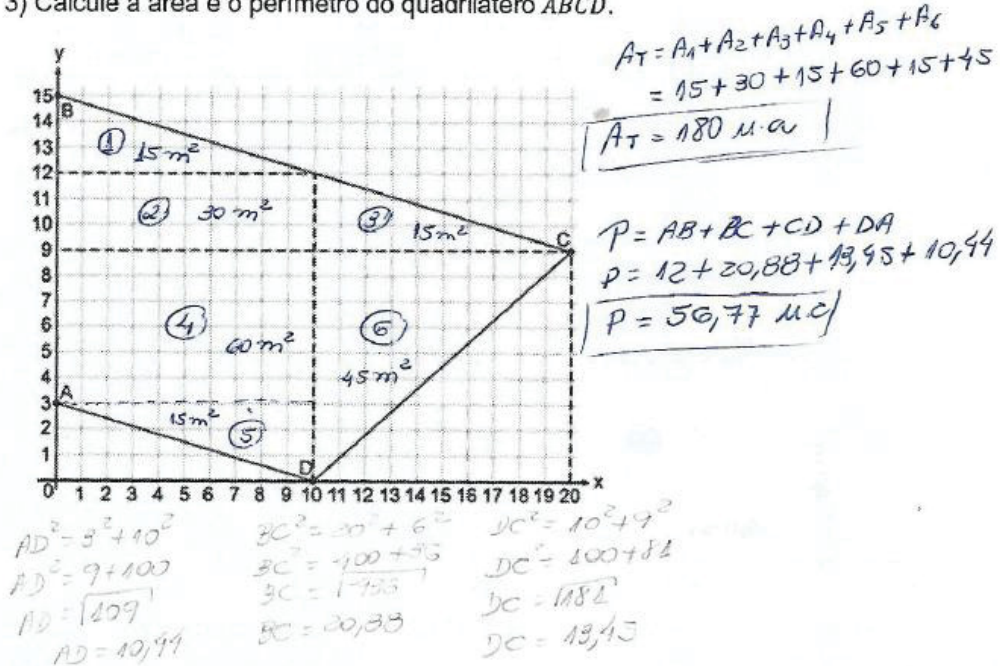 3) Calcule a área e o perímetro do quadrilátero ABCD.
A_T = A_1 + A_2 + A_3 + A_4 + A_5 + A_6
= 15 + 30 + 15 + 60 + 15 + 45
A_T = 180 u.a
P = AB + BC + CD + DA
P = 12 + 20,88 + 13,45 + 10,44
P = 56,77 u.c
y
15
B
14
13
1 15 m²
12
11
2 30 m²
10
3 15 m²
C
9
8
7
6
4 60 m²
6 45 m²
5
4
A
3
2
15 m² 5
1
D
0 1 2 3 4 5 6 7 8 9 10 11 12 13 14 15 16 17 18 19 20 x
AD² = 3² + 10²
AD² = 9 + 100
AD = √109
AD = 10,44
BC² = 20² + 6²
BC² = 400 + 36
BC = √436
BC = 20,88
DC² = 10² + 9²
DC² = 100 + 81
DC = √181
DC = 13,45